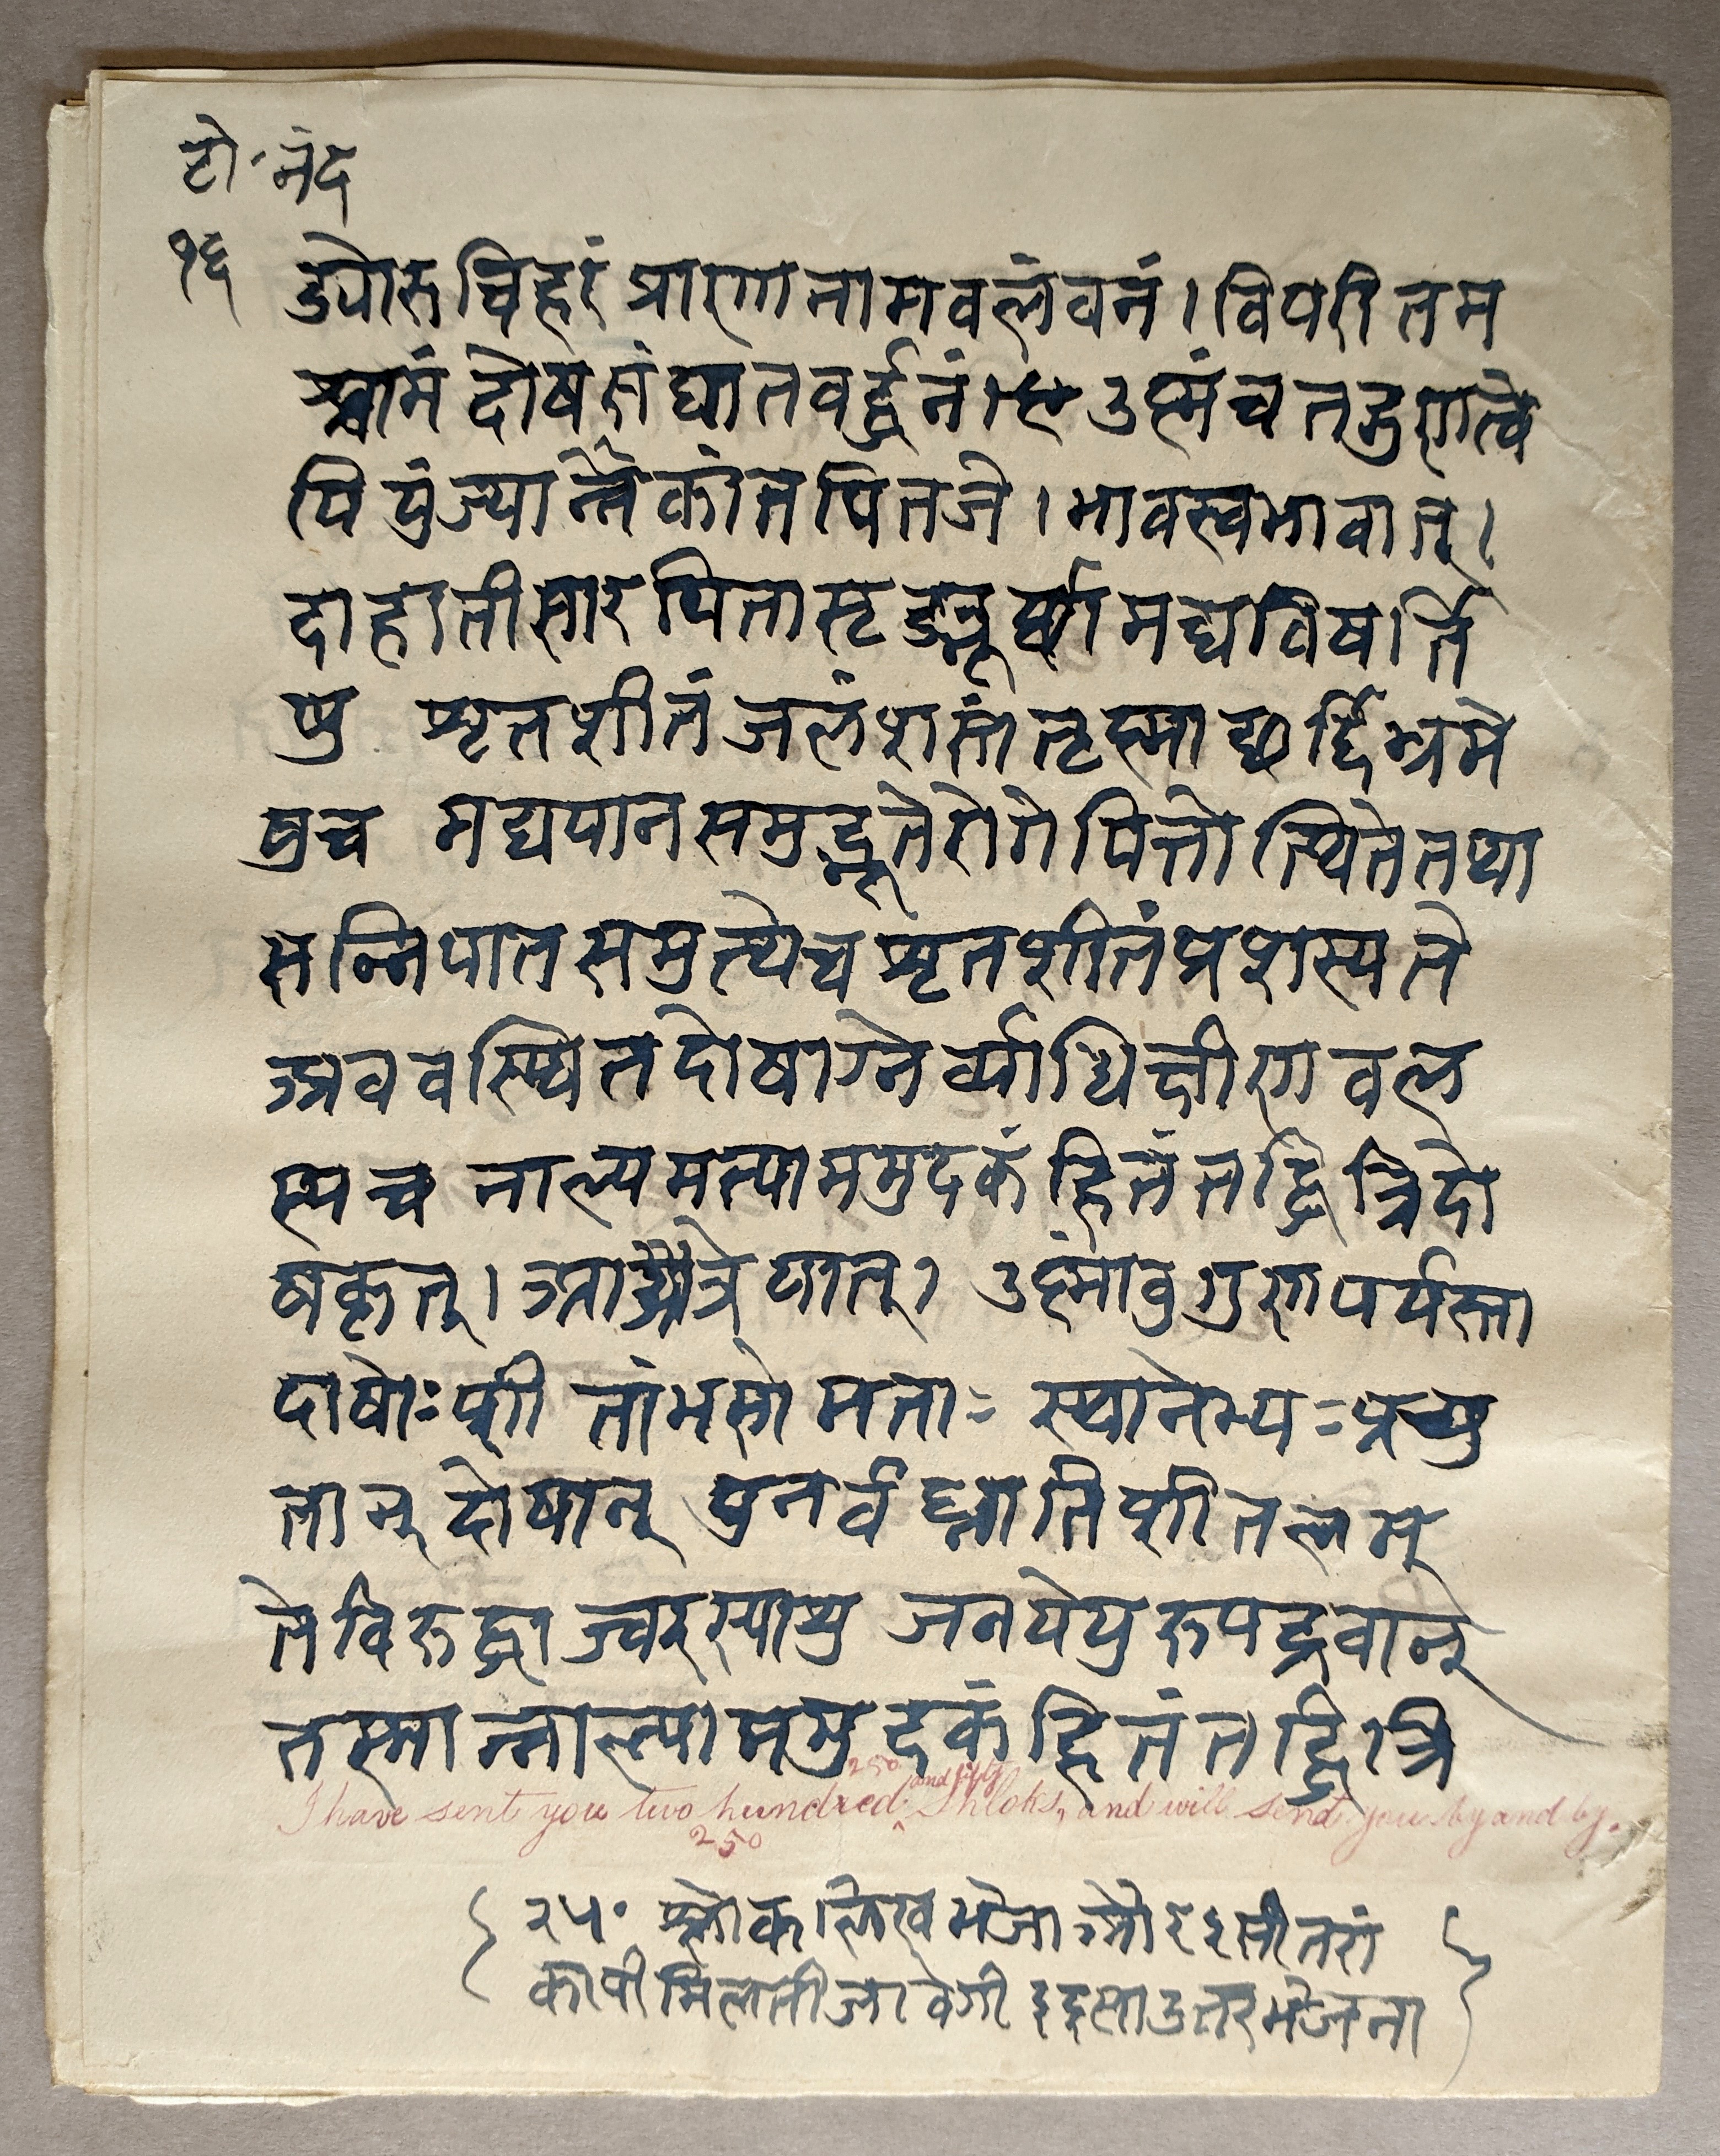 टो॰ नंद
१६
ड्योरुचिहरं प्राणानामवलंवनं। विपरीतम
श्वामं दोषसंघातवर्द्धनं। उष्मंच तद्गुणत्वे
पि युंज्यान्नैकांतपित्तजे। भावस्वभावात्।
दाहातीसारपित्तासृङ्मूर्छामद्यविषार्ति
षु शृतशीतं जलं शस्तं तृष्माछर्द्दिभ्रमे
षुच मद्यपानसमुद्भूते रोगे पित्तोत्थिते तथा
सन्निपातसमुत्थेच शृतशीतं प्रशस्यते
अववस्थितदोषाग्नेर्व्याधिक्षीणवल
स्यच नाल्पमत्पाममुदकं हितं तद्धि त्रिदो
षकृत्। आत्रेयात्। उष्मांवुगुणपर्यस्ता
दाषोः शीतांभसो मताः स्थानेभ्यः प्रच्यु
तान् दोषान् पुनर्वध्नाति शीतलम्
ते विरुद्धा ज्वरस्याशु जनयेयुरुपद्रवान्
तस्मान्नाल्पाममुदकं हितं तद्धि त्रि
250 and fifty
I have sent you two hundred Shloks, and will send you by and by.
250
२५० श्लोक लिख भेजा और इसी तरां
कापी मिलती जावेगी इस्का उत्तर भेजना